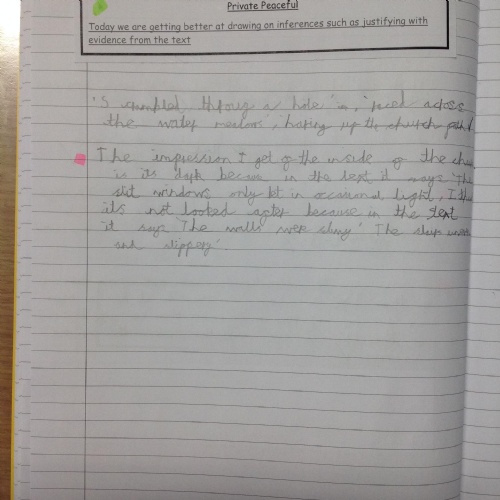 Private Peaceful
Today we are getting better at drawing on inferences such as justifying with
evidence from the text
'S crambled through a hole in, 'raced across
the water medows', up the church path
The impression I get of the inside of the
is its dark because in the text it says 'The
slit windows only let in occasional light, I
its not looked after because in the text
it says 'The walls were slimy' 'The steps were
and slippery'